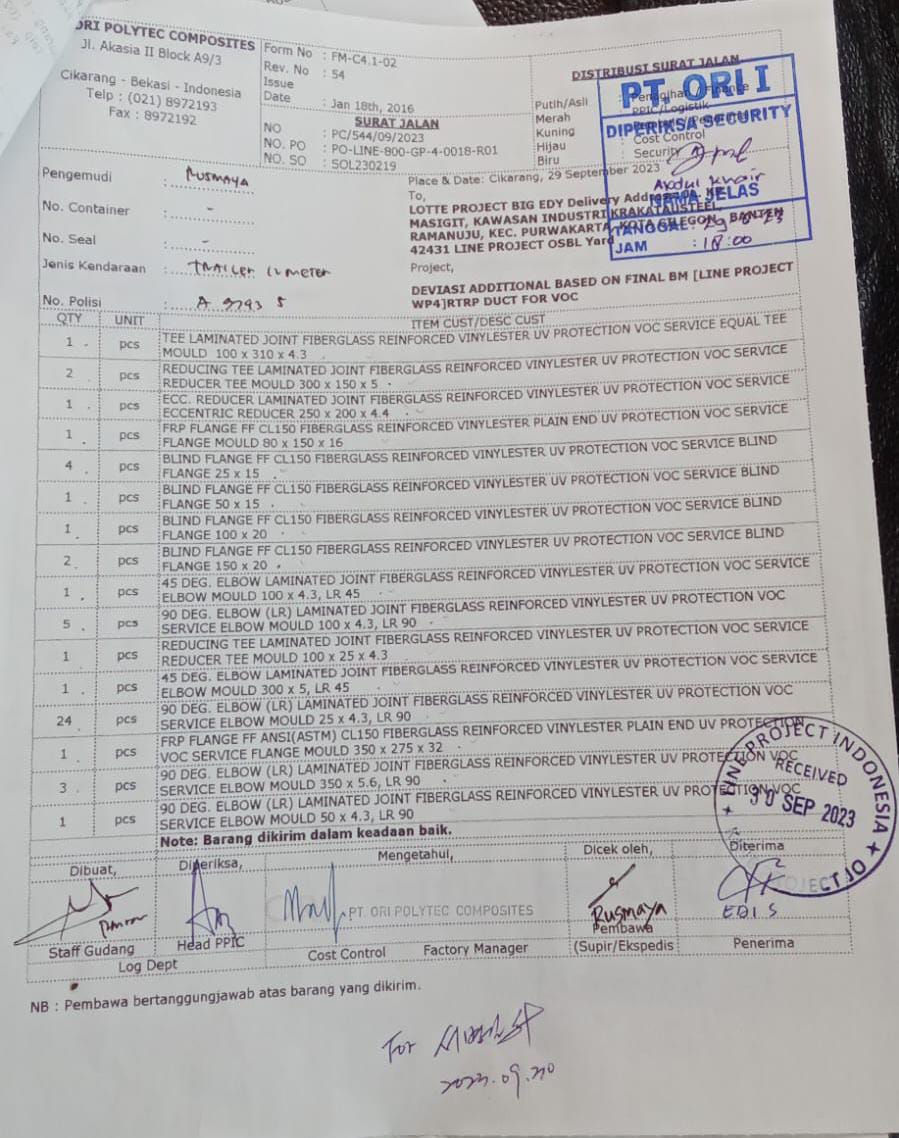 ORI POLYTEC COMPOSITES
Jl. Akasia II Block A9/3
Cikarang - Bekasi - Indonesia
Telp : (021) 8972193
Fax : 8972192
Form No : FM-C4.1-02
Rev. No : 54
Issue
Date : Jan 18th, 2016
SURAT JALAN
NO : PC/544/09/2023
NO. PO : PO-LINE-800-GP-4-0018-R01
NO. SO : SOL230219
DISTRIBUSI SURAT JALAN
Putih/Asli : Penagihan / Finance
Merah : PPIC/Logistik
Kuning :
Hijau : Cost Control
Biru : Security
PT. ORI
DIPERIKSA SECURITY
Abdul Khair
NAMA JELAS
TANGGAL :
JAM : 18:00
Pengemudi : RUSMAYA
No. Container : -
No. Seal : -
Jenis Kendaraan : TRAILER 12 METER
No. Polisi : A 9793 S
Place & Date: Cikarang, 29 September 2023
To,
LOTTE PROJECT BIG EDY Delivery Address:
MASIGIT, KAWASAN INDUSTRI KRAKATAU STEEL,
RAMANUJU, KEC. PURWAKARTA, KOTA CILEGON, BANTEN
42431 LINE PROJECT OSBL Yard
Project,
DEVIASI ADDITIONAL BASED ON FINAL BM [LINE PROJECT
WP4]RTRP DUCT FOR VOC
QTY UNIT ITEM CUST/DESC CUST
1 pcs TEE LAMINATED JOINT FIBERGLASS REINFORCED VINYLESTER UV PROTECTION VOC SERVICE EQUAL TEE
MOULD 100 x 310 x 4.3
2 pcs REDUCING TEE LAMINATED JOINT FIBERGLASS REINFORCED VINYLESTER UV PROTECTION VOC SERVICE
REDUCER TEE MOULD 300 x 150 x 5
1 pcs ECC. REDUCER LAMINATED JOINT FIBERGLASS REINFORCED VINYLESTER UV PROTECTION VOC SERVICE
ECCENTRIC REDUCER 250 x 200 x 4.4
1 pcs FRP FLANGE FF CL150 FIBERGLASS REINFORCED VINYLESTER PLAIN END UV PROTECTION VOC SERVICE
FLANGE MOULD 80 x 150 x 16
4 pcs BLIND FLANGE FF CL150 FIBERGLASS REINFORCED VINYLESTER UV PROTECTION VOC SERVICE BLIND
FLANGE 25 x 15
1 pcs BLIND FLANGE FF CL150 FIBERGLASS REINFORCED VINYLESTER UV PROTECTION VOC SERVICE BLIND
FLANGE 50 x 15
1 pcs BLIND FLANGE FF CL150 FIBERGLASS REINFORCED VINYLESTER UV PROTECTION VOC SERVICE BLIND
FLANGE 100 x 20
2 pcs BLIND FLANGE FF CL150 FIBERGLASS REINFORCED VINYLESTER UV PROTECTION VOC SERVICE BLIND
FLANGE 150 x 20
1 pcs 45 DEG. ELBOW LAMINATED JOINT FIBERGLASS REINFORCED VINYLESTER UV PROTECTION VOC SERVICE
ELBOW MOULD 100 x 4.3, LR 45
5 pcs 90 DEG. ELBOW (LR) LAMINATED JOINT FIBERGLASS REINFORCED VINYLESTER UV PROTECTION VOC
SERVICE ELBOW MOULD 100 x 4.3, LR 90
1 pcs REDUCING TEE LAMINATED JOINT FIBERGLASS REINFORCED VINYLESTER UV PROTECTION VOC SERVICE
REDUCER TEE MOULD 100 x 25 x 4.3
1 pcs 45 DEG. ELBOW LAMINATED JOINT FIBERGLASS REINFORCED VINYLESTER UV PROTECTION VOC SERVICE
ELBOW MOULD 300 x 5, LR 45
24 pcs 90 DEG. ELBOW (LR) LAMINATED JOINT FIBERGLASS REINFORCED VINYLESTER UV PROTECTION VOC
SERVICE ELBOW MOULD 25 x 4.3, LR 90
1 pcs FRP FLANGE FF ANSI(ASTM) CL150 FIBERGLASS REINFORCED VINYLESTER PLAIN END UV PROTECTION
VOC SERVICE FLANGE MOULD 350 x 275 x 32
3 pcs 90 DEG. ELBOW (LR) LAMINATED JOINT FIBERGLASS REINFORCED VINYLESTER UV PROTECTION VOC
SERVICE ELBOW MOULD 350 x 5.6, LR 90
1 pcs 90 DEG. ELBOW (LR) LAMINATED JOINT FIBERGLASS REINFORCED VINYLESTER UV PROTECTION VOC
SERVICE ELBOW MOULD 50 x 4.3, LR 90
Note: Barang dikirim dalam keadaan baik.
LINE PROJECT INDONESIA
RECEIVED
30 SEP 2023
Dibuat, Diperiksa, Mengetahui, Dicek oleh, Diterima
PT. ORI POLYTEC COMPOSITES
Rusmaya
EDI S
Staff Gudang Head PPIC Cost Control Factory Manager Pembawa
(Supir/Ekspedis Penerima
Log Dept
NB : Pembawa bertanggungjawab atas barang yang dikirim.
For